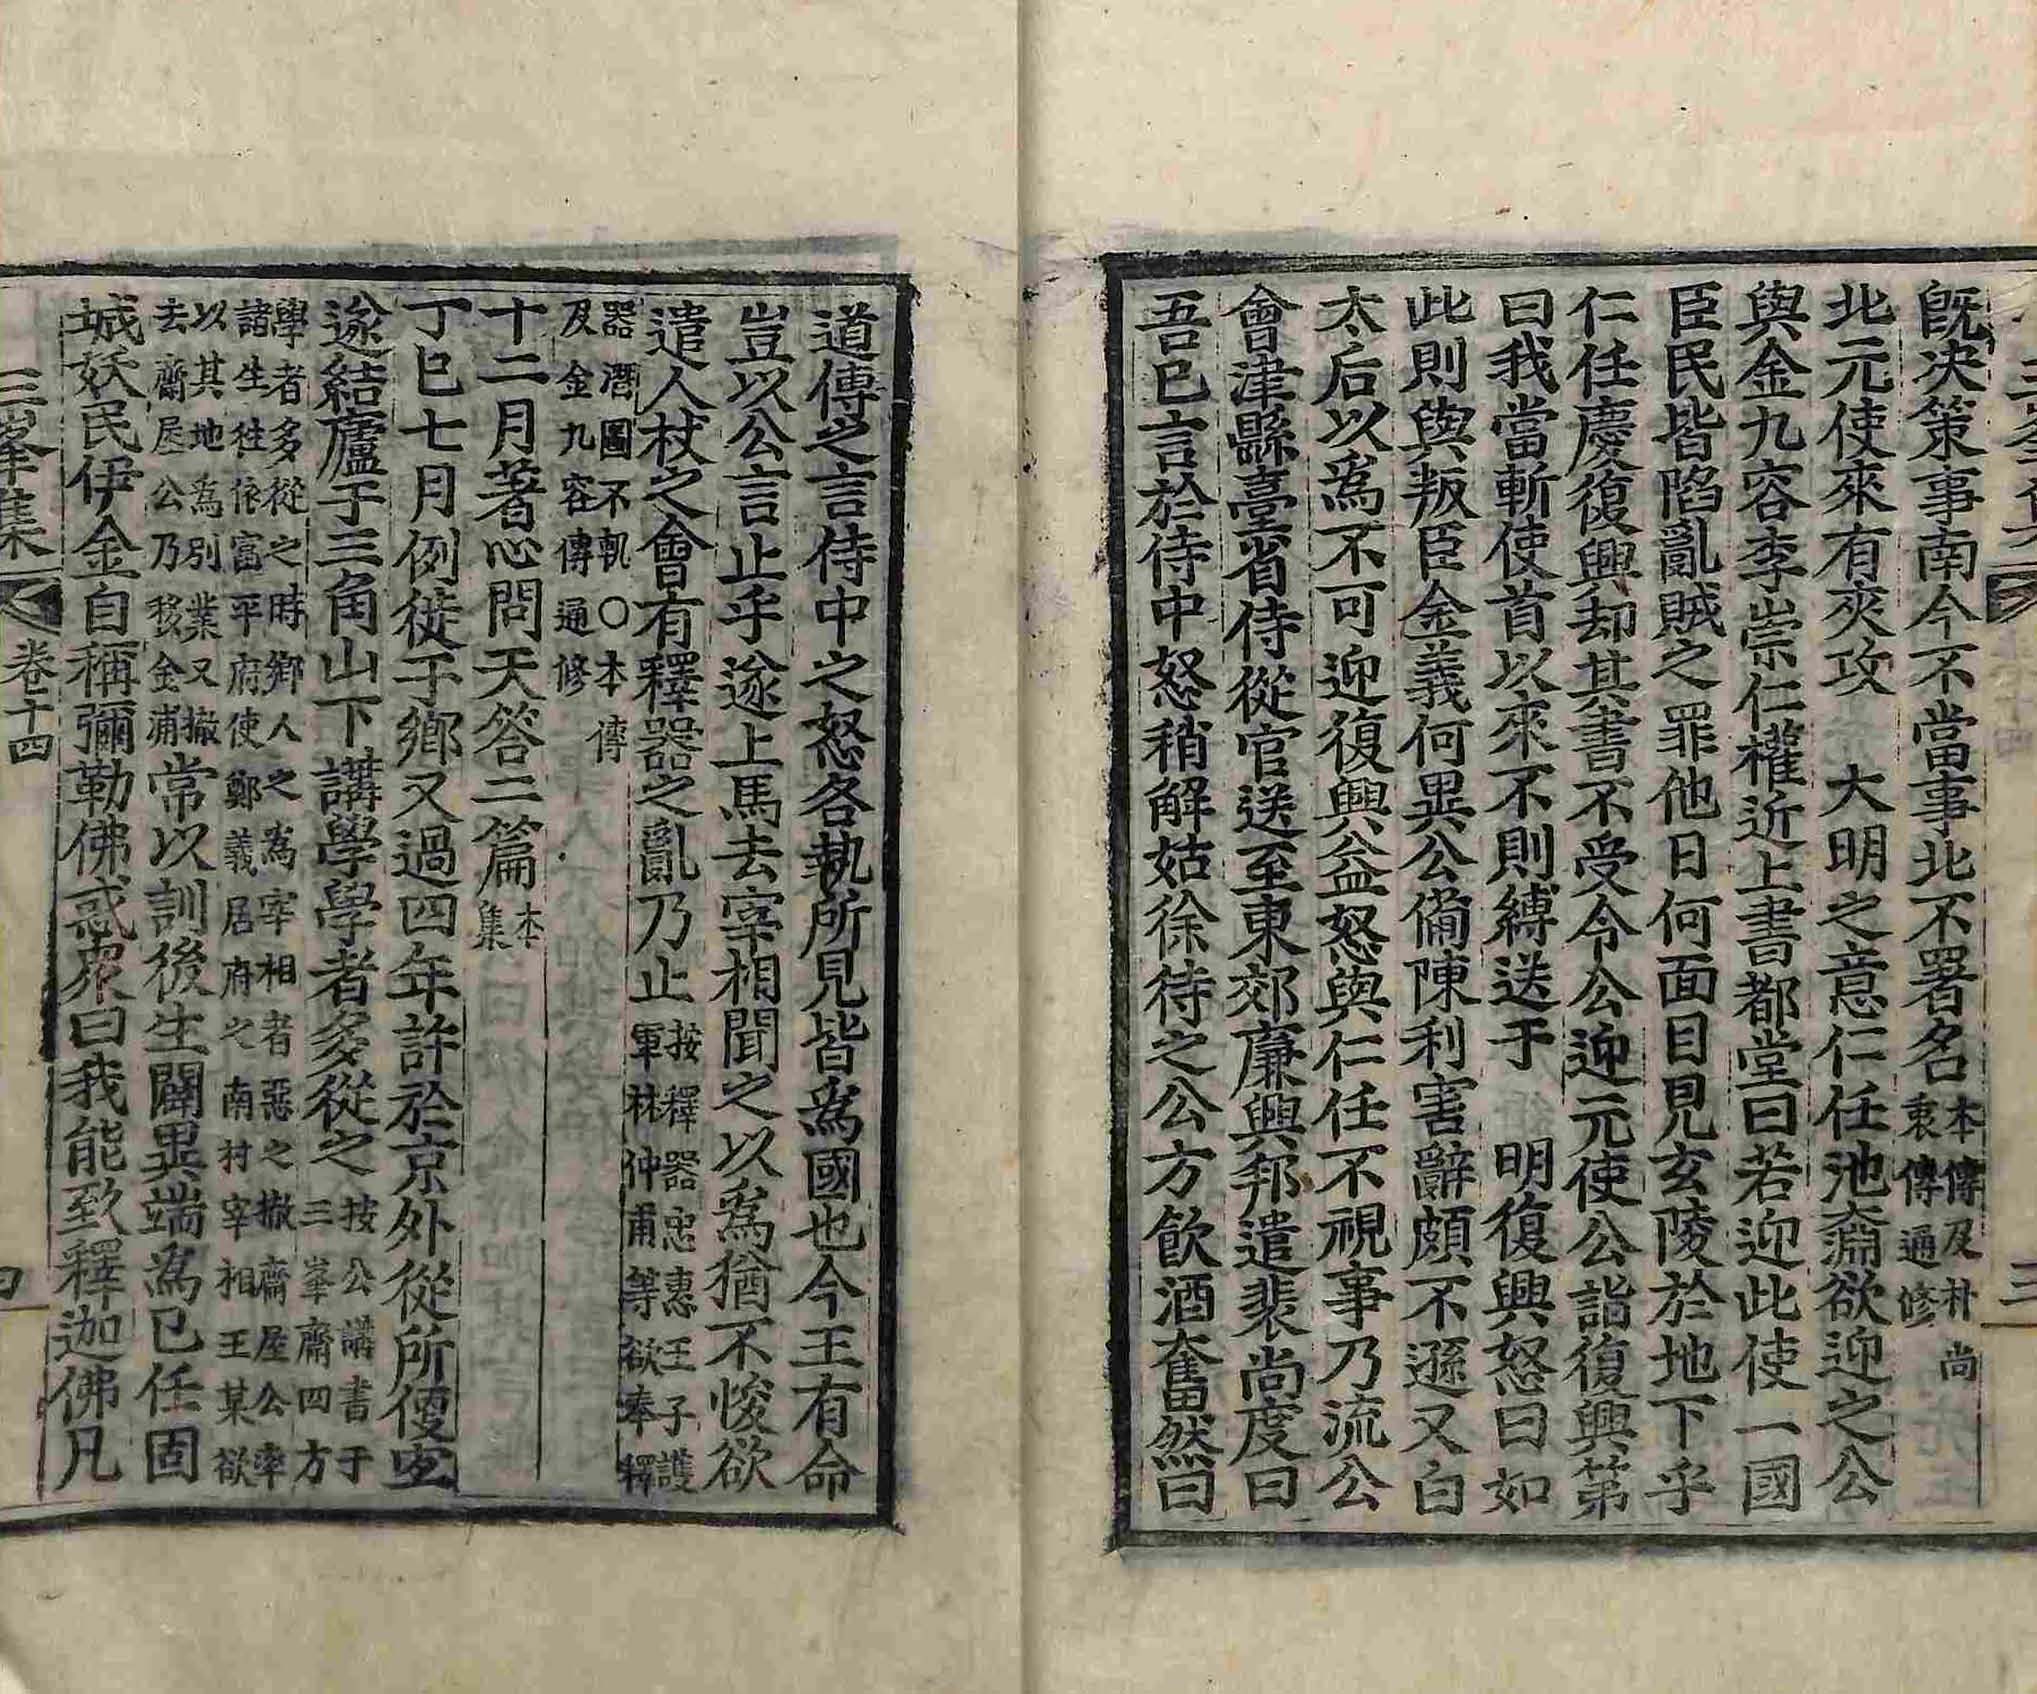 旣决策事南今不當事北不署名本傳及朴尚衷傳通修
北元使來有夾攻　大明之意仁任池奫欲迎之公
與金九容李崇仁權近上書都堂曰若迎此使一國
臣民皆陷亂賊之罪他日何面目見玄陵於地下乎
仁任慶復興却其書不受令公迎元使公詣復興第
曰我當斬使首以來不則縛送于　明復興怒曰如
此則與叛臣金義何異公備陳利害辭頗不遜又白
太后以爲不可迎復興益怒與仁任不視事乃流公
會津縣臺省侍從官送至東郊廉興邦遣裴尚度曰
吾已言於侍中怒稍解姑徐待之公方飮酒奮然曰
道傳之言侍中之怒各執所見皆爲國也今王有命
豈以公言止乎遂上馬去宰相聞之以爲猶不悛欲
遣人杖之會有釋器之亂乃止按釋器忠惠王子護軍林仲甫等欲奉釋
器潛圖不軌〇本傳及金九容傳通修
十二月著心問天答二篇本集
丁巳七月例徙于鄕又過四年許於京外從所便定
遂結廬于三角山下講學學者多從之按公講書于三峯齋四方
學者多從之時鄕人之爲宰相者惡之撤齋屋公率諸生往依富平府使鄭義居府之南村宰相王某欲
以其地爲別業又撤去齋屋公乃移金浦常以訓後生闢異端爲己任固
城妖民伊金自稱彌勒佛惑衆曰我能致釋迦佛凡
三峯集
卷十四